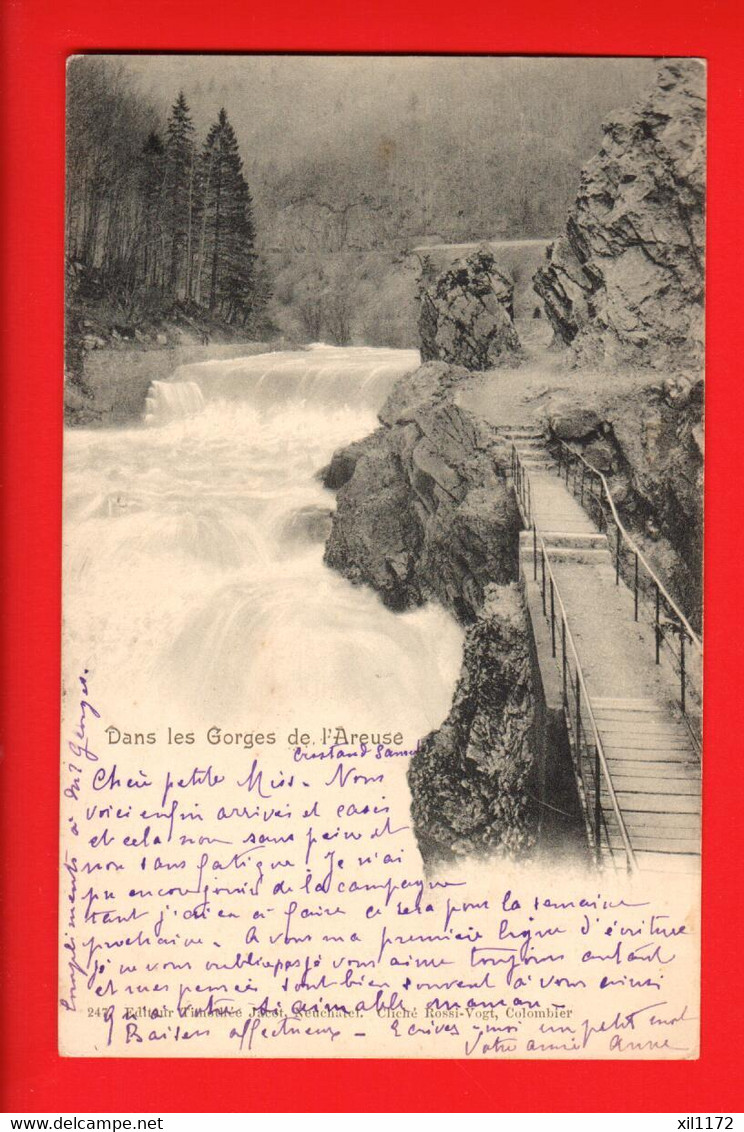 Dans les Gorges de l'Areuse
Samedi
Chère petite Miss. Nous
voici enfin arrivés et casés
et cela non sans peine et
non sans fatigue. Je n'ai
pu encore jouir de la campagne
tant j'ai eu à faire ce sera pour la semaine
prochaine. A vous ma première ligne d'écriture
je ne vous oublie pas je vous aime toujours autant
et mes pensées sont bien souvent à vous ainsi
qu'à votre si aimable maman
247 Editeur Timothée Jacot, Neuchâtel. Cliché Rossi-Vogt, Colombier
Baisers affectueux - Ecrivez-moi un petit mot
Votre amie Anne
Compliments à
xil1172